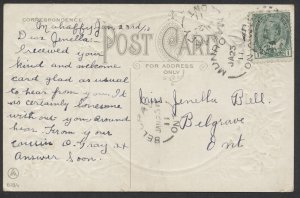 CORRESPONDENCE
Jan 23rd/11
Dear Jenella:-
I received your
kind and welcome
card glad as usual
to hear from you. It
is certainly lonesome
with out you around
hear. From your
Cousin O Gray xx
Answer Soon.
POST CARD
FOR ADDRESS
ONLY
Miss Jenella Bell.
Belgrave
Ont